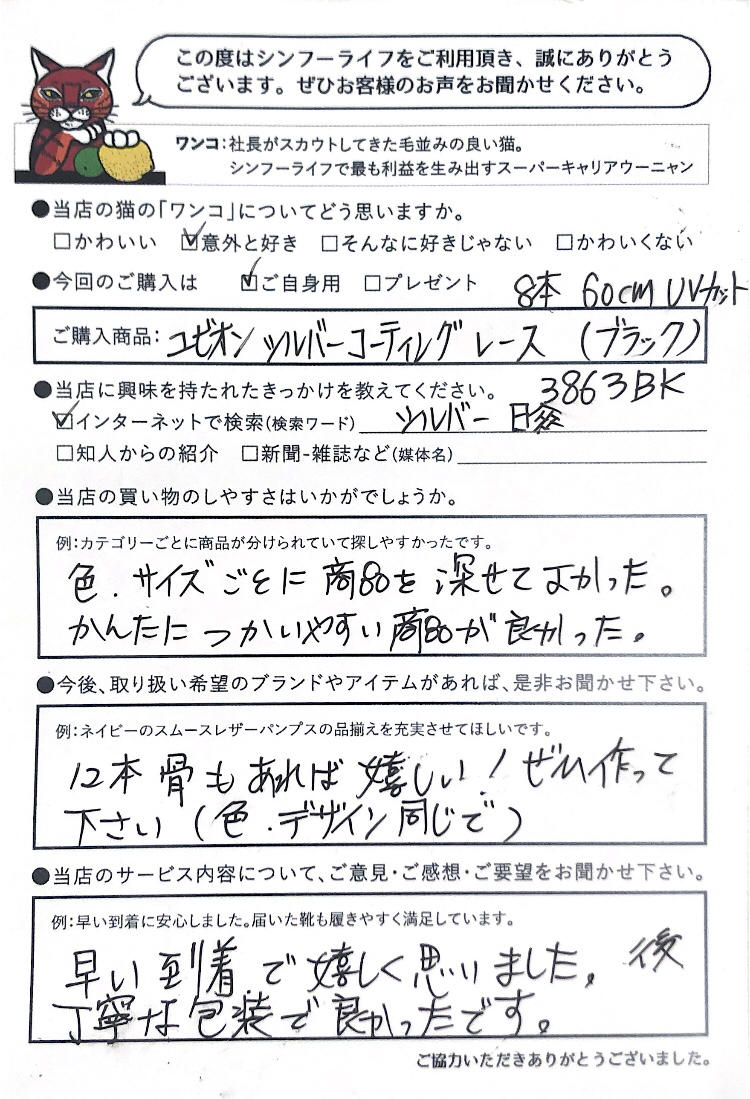 この度はシンフーライフをご利用頂き、誠にありがとう
ございます。ぜひお客様のお声をお聞かせください。
ワンコ：社長がスカウトしてきた毛並みの良い猫。
シンフーライフで最も利益を生み出すスーパーキャリアウーニャン
●当店の猫の「ワンコ」についてどう思いますか。
□かわいい ☑意外と好き □そんなに好きじゃない □かわいくない
●今回のご購入は ☑ご自身用 □プレゼント
8本 60cm UVカット
ご購入商品：ユビオン シルバーコーティング レース (ブラック)
●当店に興味を持たれたきっかけを教えてください。 3863BK
☑インターネットで検索(検索ワード) シルバー 日傘
□知人からの紹介 □新聞-雑誌など(媒体名)
●当店の買い物のしやすさはいかがでしょうか。
例：カテゴリーごとに商品が分けられていて探しやすかったです。
色．サイズごとに商品を深せてよかった。
かんたに つかいやすい商品が良かった。
●今後、取り扱い希望のブランドやアイテムがあれば、是非お聞かせ下さい。
例：ネイビーのスムースレザーパンプスの品揃えを充実させてほしいです。
12本骨もあれば嬉しい！ぜひ作って
下さい(色．デザイン同じで)
●当店のサービス内容について、ご意見・ご感想・ご要望をお聞かせ下さい。
例：早い到着に安心しました。届いた靴も履きやすく満足しています。
早い到着で嬉しく思いました。後
丁寧な包装で良かったです。
ご協力いただきありがとうございました。